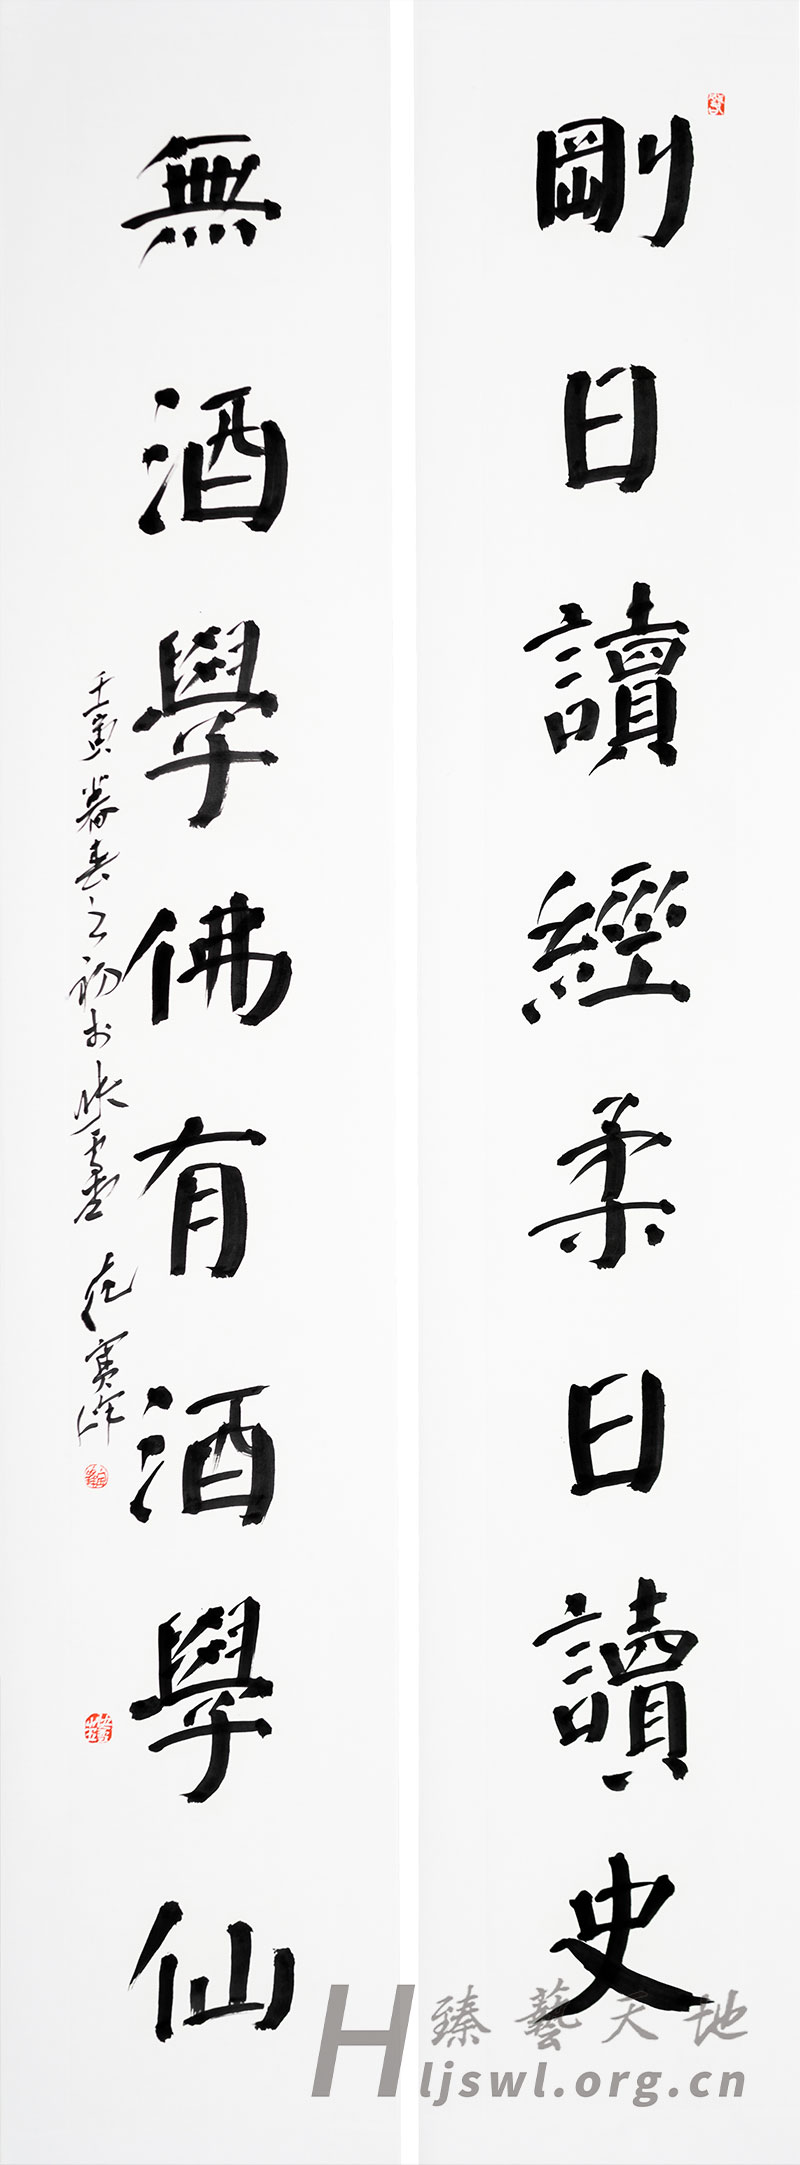 剛日讀經柔日讀史
無酒學佛有酒學仙
壬寅暮春之初於映雪堂
臻藝天地
Hljswl.org.cn